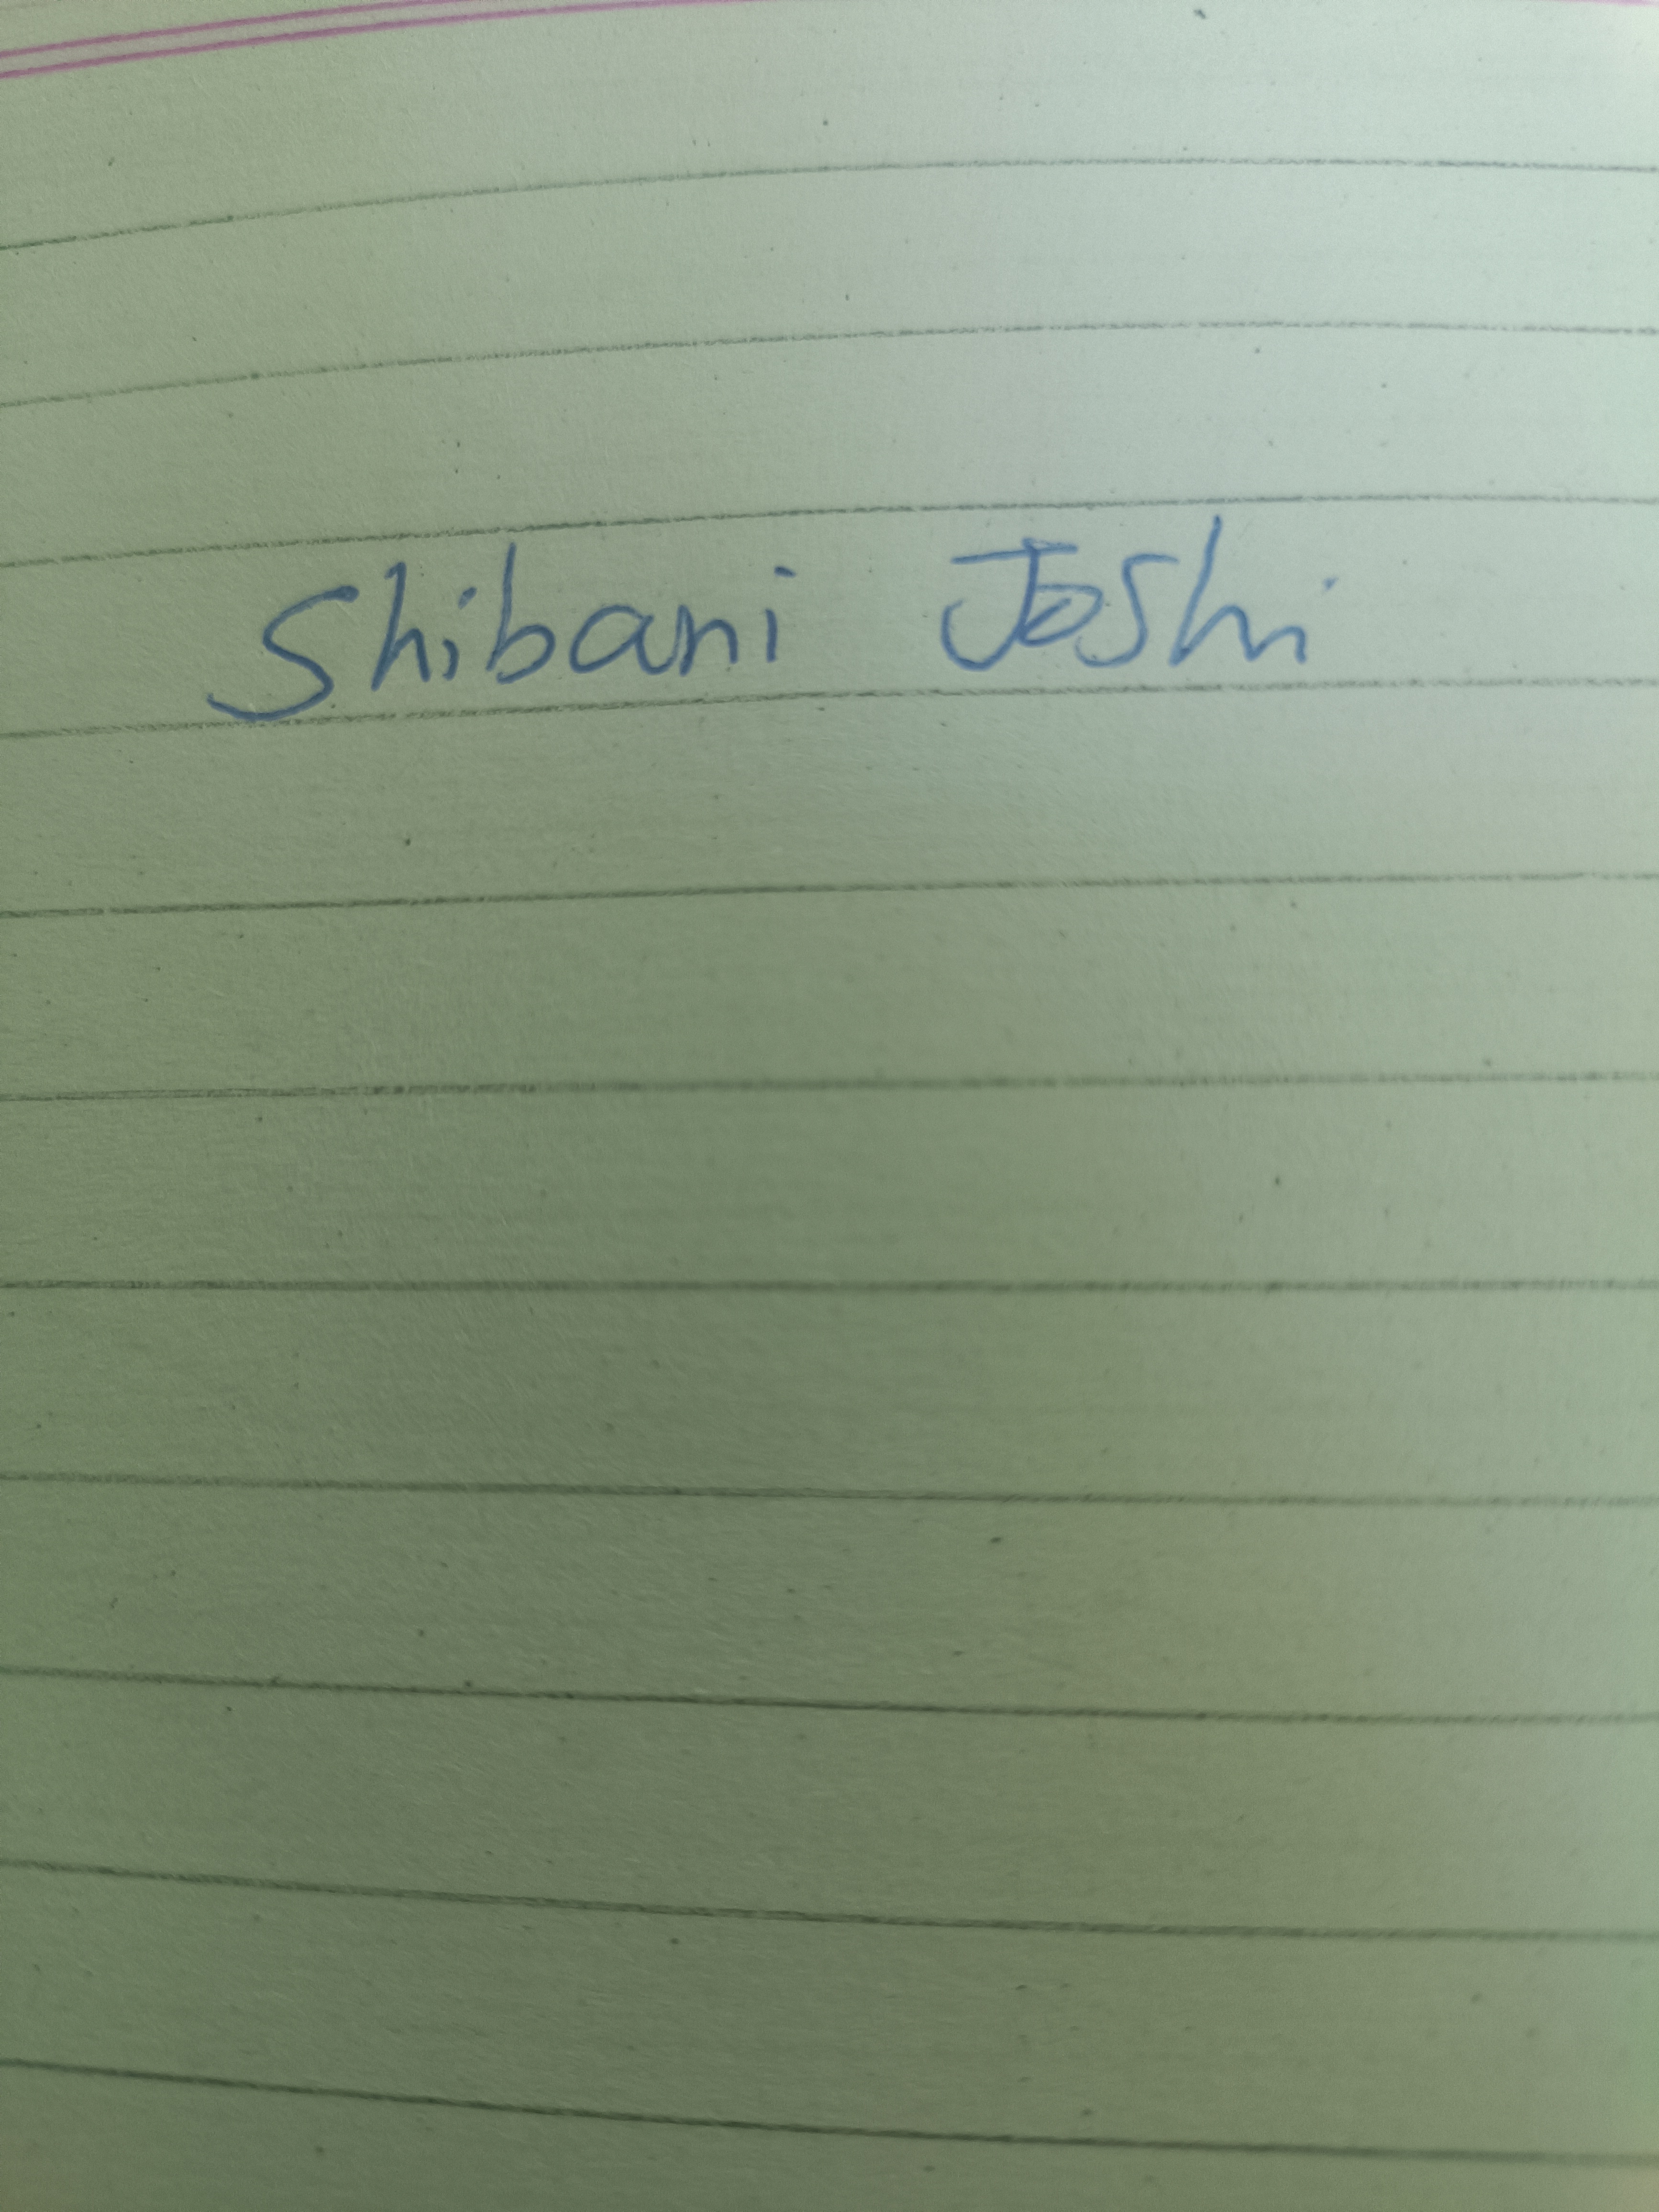 Shibani Joshi